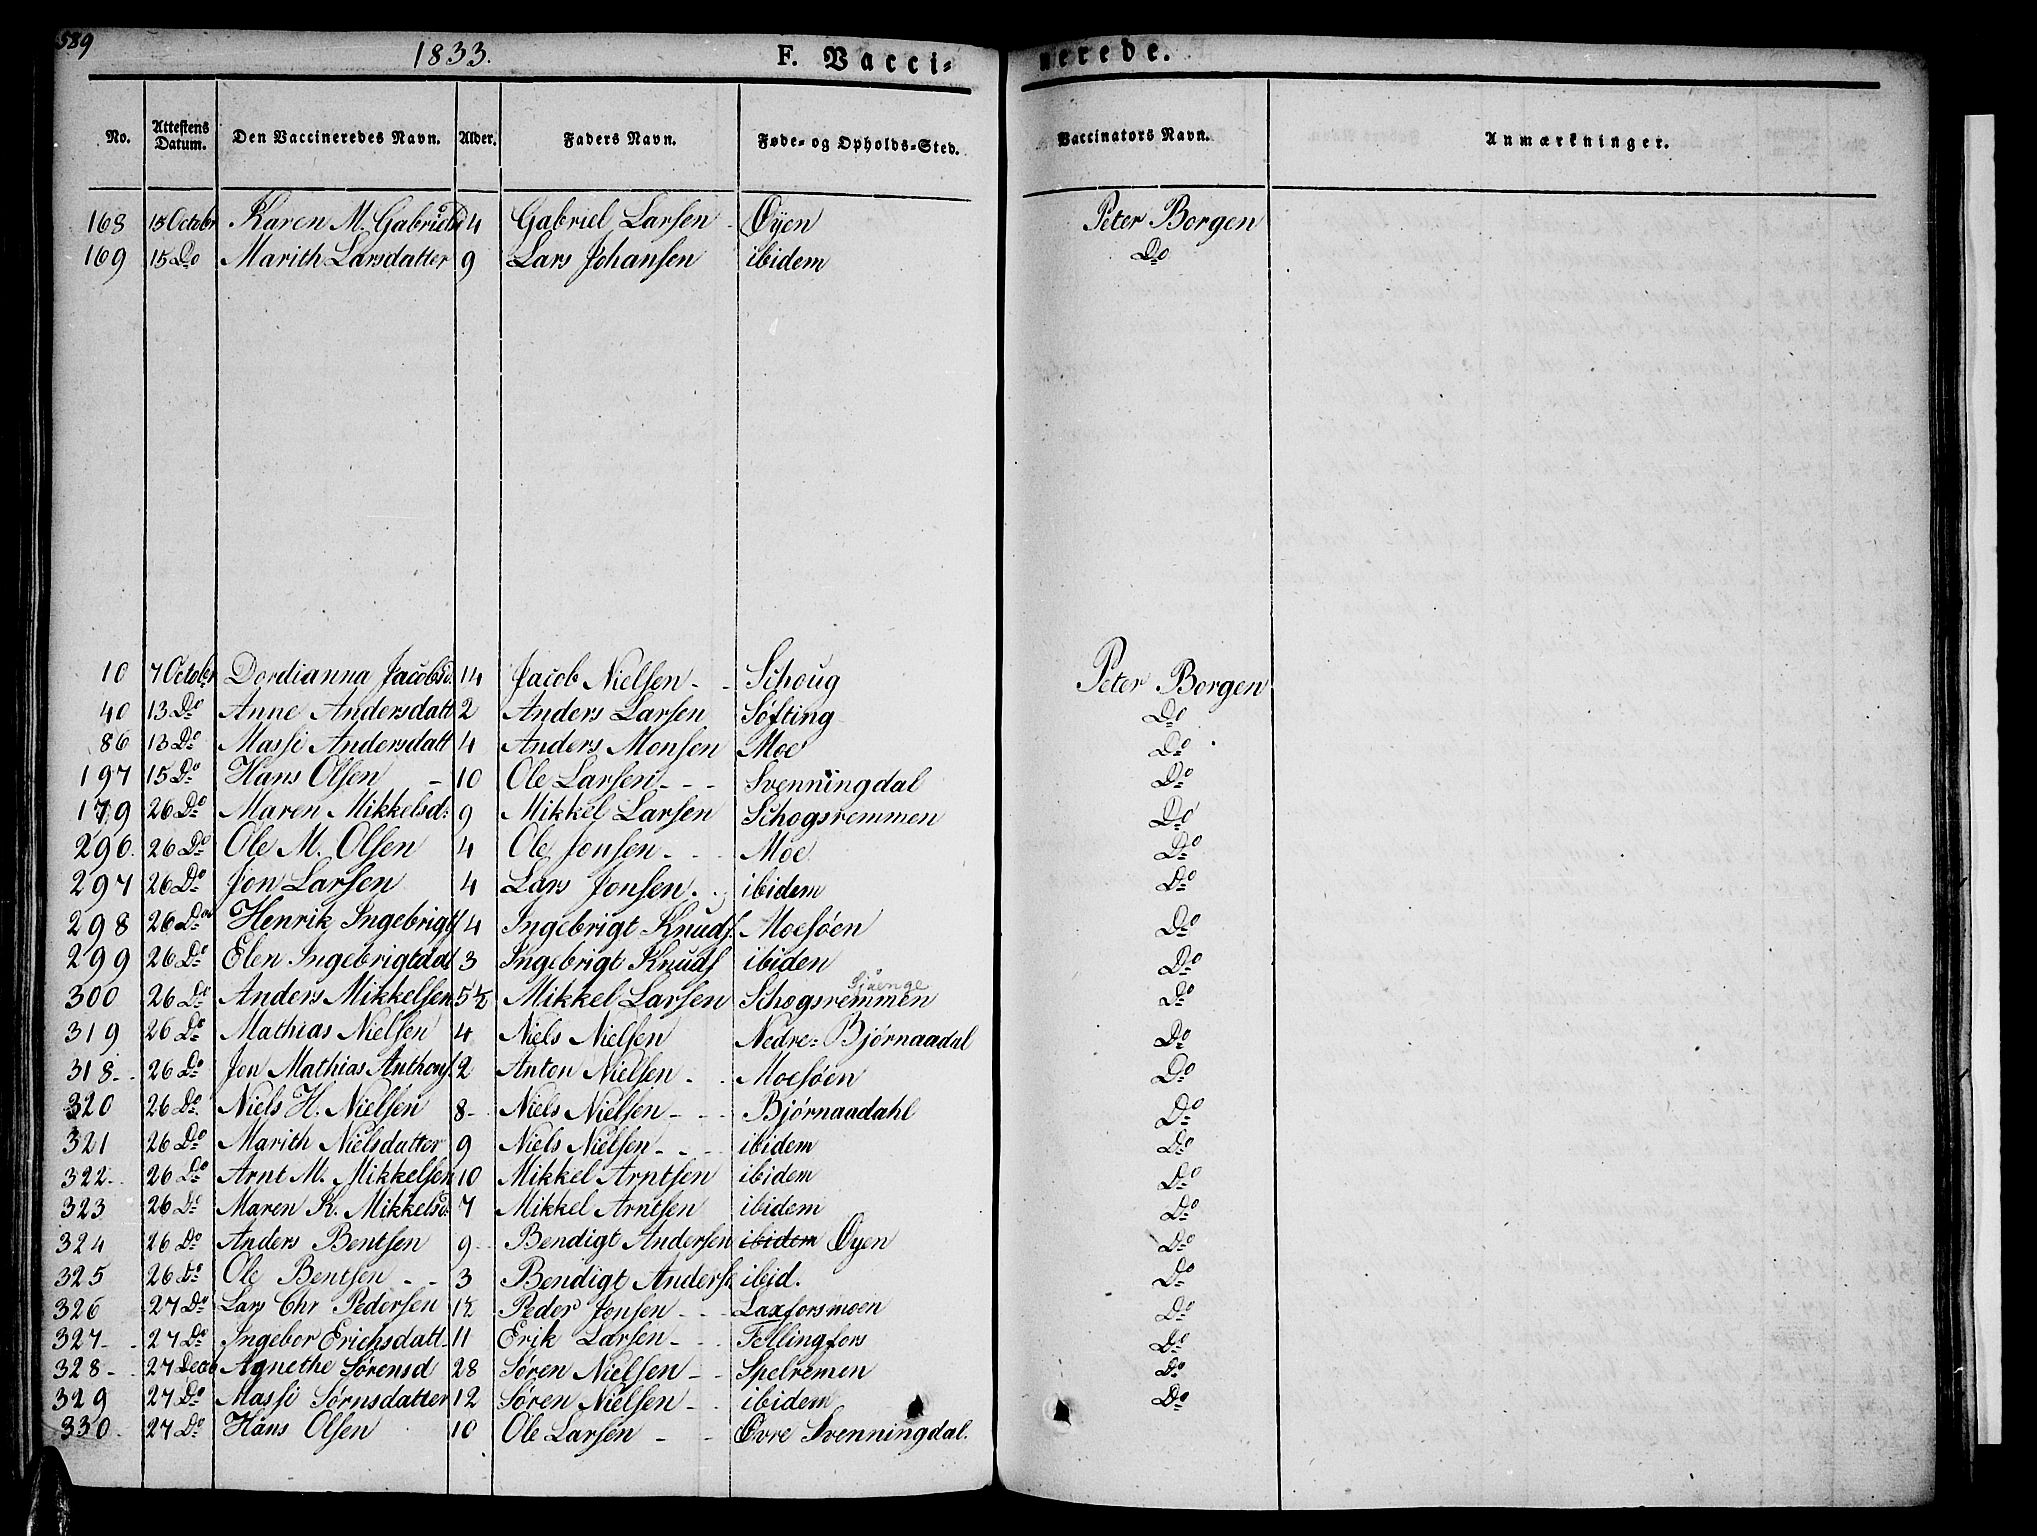 589
1833.
F. Vacci=
nerede.
No. Attestens Datum. Den Vaccineredes Navn. Alder. Faders Navn. Føde- og Opholds-Sted. Vaccinators Navn. Anmærkninger.
168 15 Octobr Karen M. Gabrielsd 4 Gabriel Larsen - Øyen Peter Borgen
169 15 Do Marith Larsdatter 9 Lars Johansen ibidem Do
10 7 Octobr Dordianna Jacobsd. 14 Jacob Nielsen - - Schoug Peter Borgen
40 13 Do Anne Andersdatt 2 Anders Larsen Søfting Do
86 13 Do Massi Andersdatt 4 Anders Monsen Moe Do
197 15 Do Hans Olsen - 10 Ole Larsen - - - Svenningdal Do
179 26 Do Maren Mikkelsd: 9 Mikkel Larsen Schogsremmen Do
296. 26 Do Ole M. Olsen 4 Ole Jonsen - - Moe. Do
297 26 Do Jon Larsen 4 Lars Jonsen - . ibidem Do
298 26 Do Henrik Ingebrigts 4 Ingebrigt Knuds. Moesøen Do
299 26 Do Elen Ingebrigtdat 3 Ingebrigt Knuds ibiden Do
300 26 Do Anders Mikkelsen 5½ Mikkel Larsen Schogsremmen Do
319 26 Do Mathias Nielsen 4 Niels Nielsen Nedre= Bjørnaadal Do
318 - . 26 Do Jon Mathias Anthons. 2 Anton Nielsen - . Moesøen Do
320 26 Do Niels H. Nielsen 8 - Niels Nielsen - - - Bjørnaadahl Do
321 26 Do Marith Nielsdatter 9 Niels Nielsen - - - ibidem Do
322 - 26 Do Arnt M. Mikkelsen 10 Mikkel Arntsen ibidem Do
323 26 Do Maren K. Mikkelsd. 7 Mikkel Arntsen ibidem Do
324 26 Do Anders Bentsen 9 - Bendigt Andersen ibidem Øyen Do
325 26 Do Ole Bentsen - - 3 Bendigt Anderse ibid. Do
326 27 Do Lars Chr Pedersen 12 Peder Jonsen - - Laxforsmoen Do
327 - . 27 Do Ingebor Erichsdatt. 11 Erik Larsen - - Fellingfors Do
328 - . 27 Agnethe Sørensd 28 Søren Nielsen - - Spelremen Do
329 27 Do Massi Sørnsdatter 12 Søren Nielsen - . ibidem Do
330 - 27 Do Hans Olsen 10 Ole Larsen - - Øvre Svenningdal.